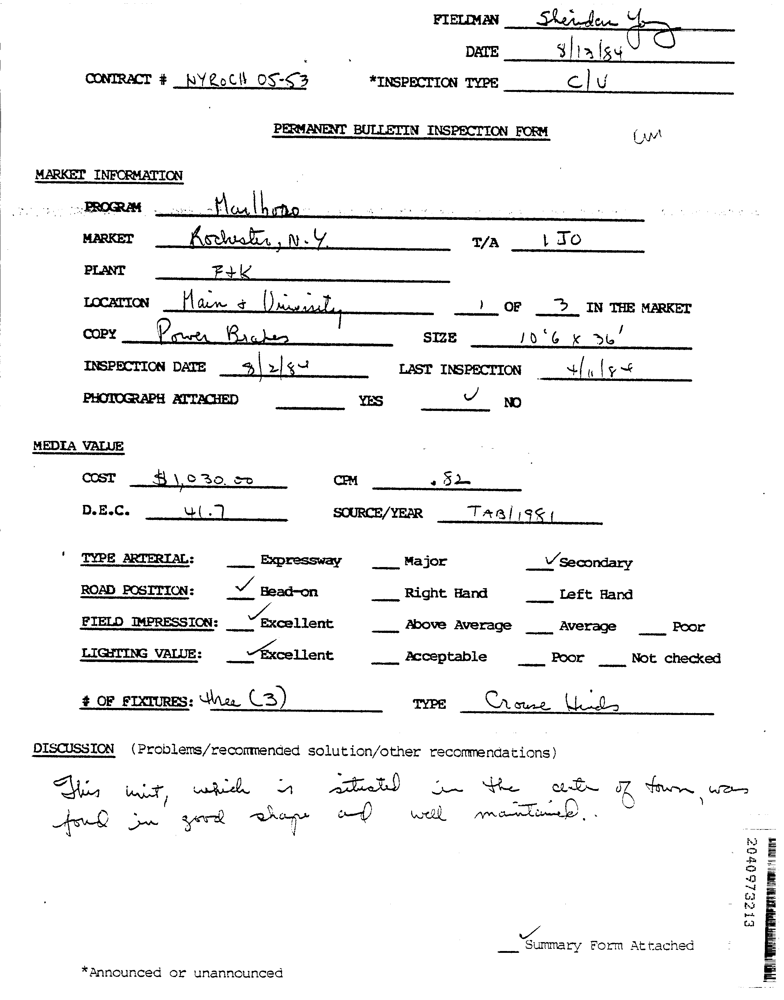 FIELDMAN Sheridan Young
DATE 8/13/84
CONTRACT # NYROCH 05-53 *INSPECTION TYPE C/U
PERMANENT BULLETIN INSPECTION FORM
MARKET INFORMATION
PROGRAM Marlboro
MARKET Rochester, N.Y. T/A 1 JO
PLANT F+K
LOCATION Main + University 1 OF 3 IN THE MARKET
COPY Power Brakes SIZE 10'6 x 36'
INSPECTION DATE 8/2/84 LAST INSPECTION 4/11/84
PHOTOGRAPH ATTACHED YES ✓ NO
MEDIA VALUE
COST $1,030.00 CPM .82
D.E.C. 41.7 SOURCE/YEAR TAB/1981
TYPE ARTERIAL: Expressway Major ✓ Secondary
ROAD POSITION: ✓ Head-on Right Hand Left Hand
FIELD IMPRESSION: ✓ Excellent Above Average Average Poor
LIGHTING VALUE: ✓ Excellent Acceptable Poor Not checked
# OF FIXTURES: three (3) TYPE Crouse Hinds
DISCUSSION (Problems/recommended solution/other recommendations)
This unit, which is situated in the center of town, was
found in good shape and well maintained..
2040973213
✓ Summary Form Attached
*Announced or unannounced